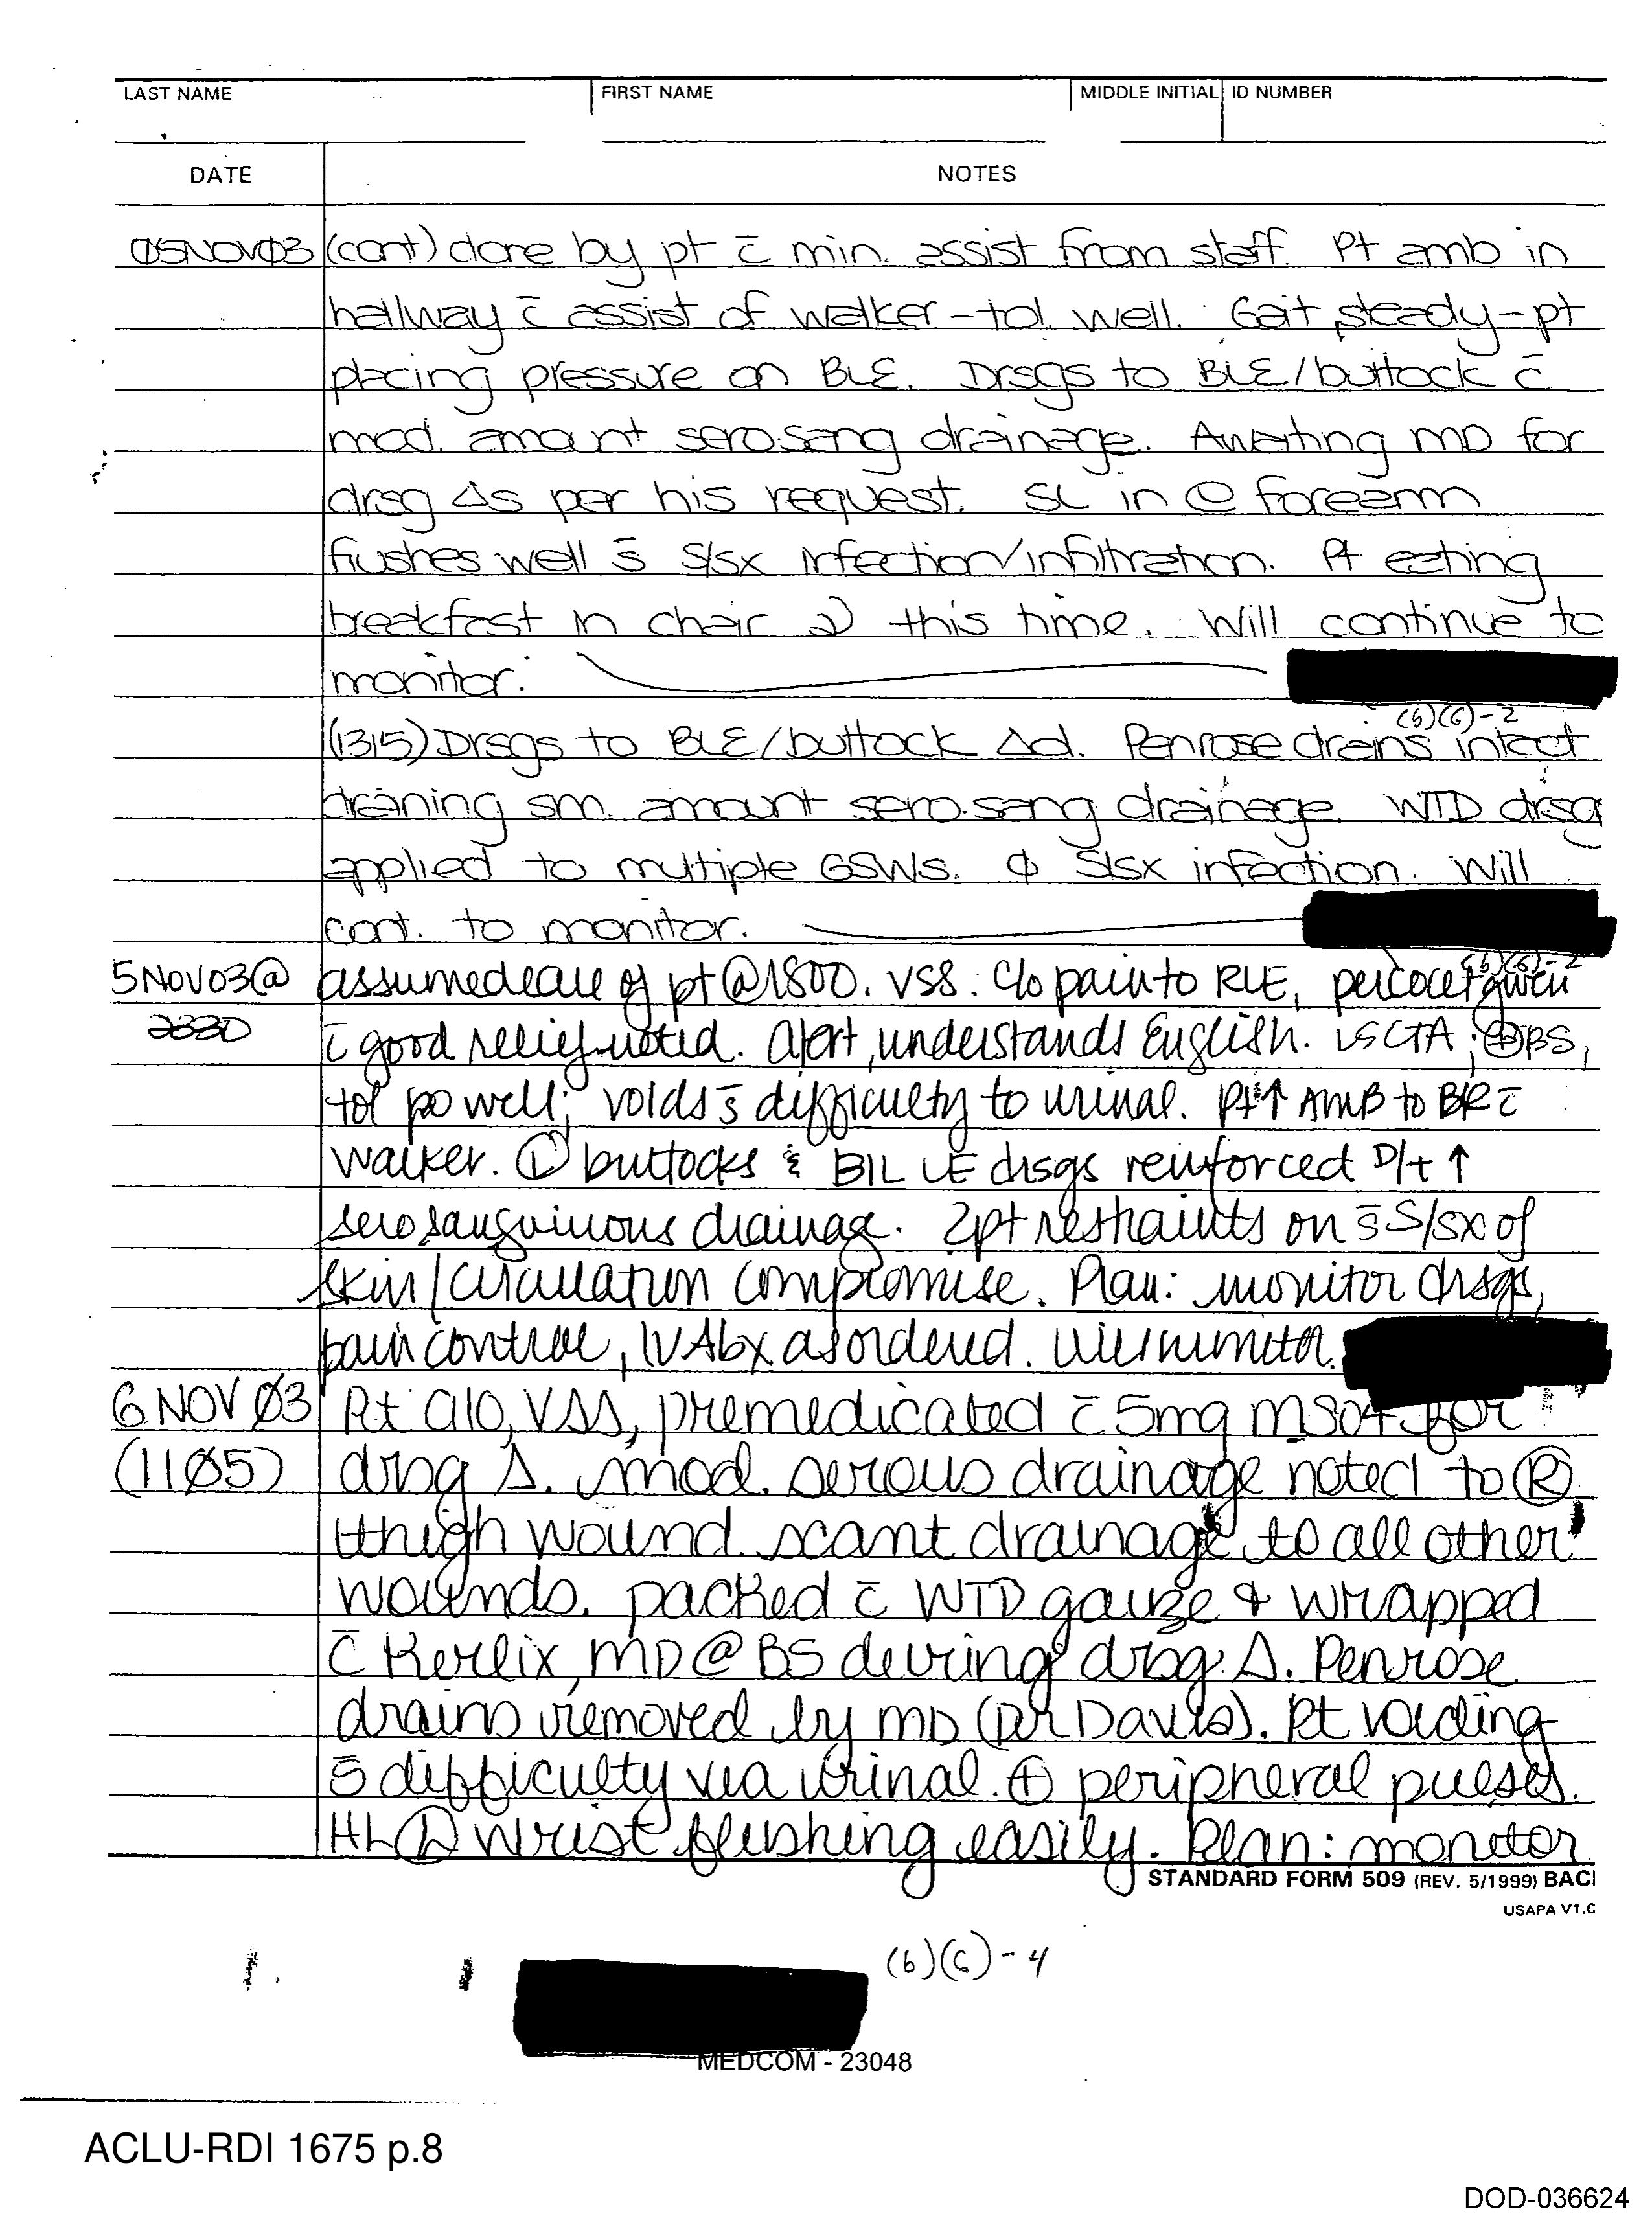 LAST NAME FIRST NAME MIDDLE INITIAL ID NUMBER
DATE NOTES
05NOV03 (cont) done by pt c̄ min. assist from staff. Pt amb in
hallway c̄ assist of walker - tol. well. Gait steady - pt
placing pressure on BLE. Drsgs to BLE/buttock c̄
mod. amount serosang drainage. Awaiting MD for
drsg Δs per his request. SL in forearm
flushes well s̄ S/sx infection/infiltration. Pt eating
breakfast in chair @ this time. Will continue to
monitor.
(b)(6)-2
(1315) Drsgs to BLE/buttock Δd. Penrose drains intact
draining sm. amount sero-sang drainage. WTD drsg
applied to multiple GSWs. Ø S/sx infection. Will
cont. to monitor.
(b)(6)-2
5NOV03@ assumed care of pt @ 1800. VSS. C/o pain to RLE, percocet given
c̄ good relief noted. Alert, understands English. LSCTA, ⊕BS,
tol po well; voids s̄ difficulty to urinal. Pt ↑ AMB to BR c̄
walker. Ⓛ buttocks & BIL LE drsgs reinforced D/t ↑
serosanguinous drainage. 2pt restraints on s̄ S/sx of
skin/circulation compromise. Plan: monitor drsgs,
pain control, IV Abx as ordered. Will monitor.
6 NOV Ø3 Pt a/o, VSS, premedicated c̄ 5mg MSO4 for
(11Ø5) drsg Δ. mod. serous drainage noted to Ⓡ
thigh wound. scant drainage to all other
wounds. packed c̄ WTD gauze & wrapped
c̄ Kerlix, MD @ BS during drsg Δ. Penrose
drains removed by MD (Dr Davis). Pt voiding
s̄ difficulty via urinal. ⊕ peripheral pulses.
HL Ⓛ wrist flushing easily. Plan: monitor
STANDARD FORM 509 (REV. 5/1999) BAC
USAPA V1.0
(b)(6)-4
MEDCOM - 23048
ACLU-RDI 1675 p.8
DOD-036624